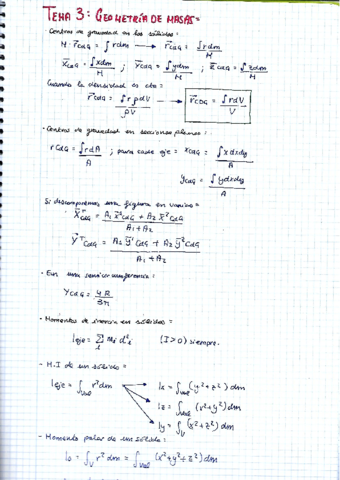 TEMA 3: GEOMETRÍA DE MASAS=
Centros de gravedad en los sólidos:
M · r⃗CdG = ∫ r dm → r⃗CdG = ∫ r dm / M
x⃗CdG = ∫ x dm / M ; y⃗CdG = ∫ y dm / M ; z⃗CdG = ∫ z dm / M
Cuando la densidad es cte:
r⃗CdG = ∫ r ρ dV / ρV → r⃗CDG = ∫ r dV / V
· Centros de gravedad en secciones planas:
rCdG = ∫ r dA / A ; para cada eje = xCdG = ∫ x dx dy / A
yCdG = ∫ y dx dy / A
Si descomponemos una figura en varias =
X⃗ᵀCdG = A₁ x⃗¹CdG + A₂ x⃗²CdG / A₁ + A₂
Y⃗ᵀCdG = A₁ y⃗¹CdG + A₂ y⃗²CdG / A₁ + A₂
· En una semicircunferencia:
YCdG = 4R / 3π
· Momentos de inercia en sólidos =
Ieje = Σi mi d²i (I > 0) siempre.
- M.I de un sólido =
Ieje = ∫vol r² dm
Ix = ∫vol (y² + z²) dm
Iz = ∫vol (x² + y²) dm
Iy = ∫V (x² + z²) dm
- Momento polar de un sólido:
Io = ∫V r² dm = ∫vol (x² + y² + z²) dm